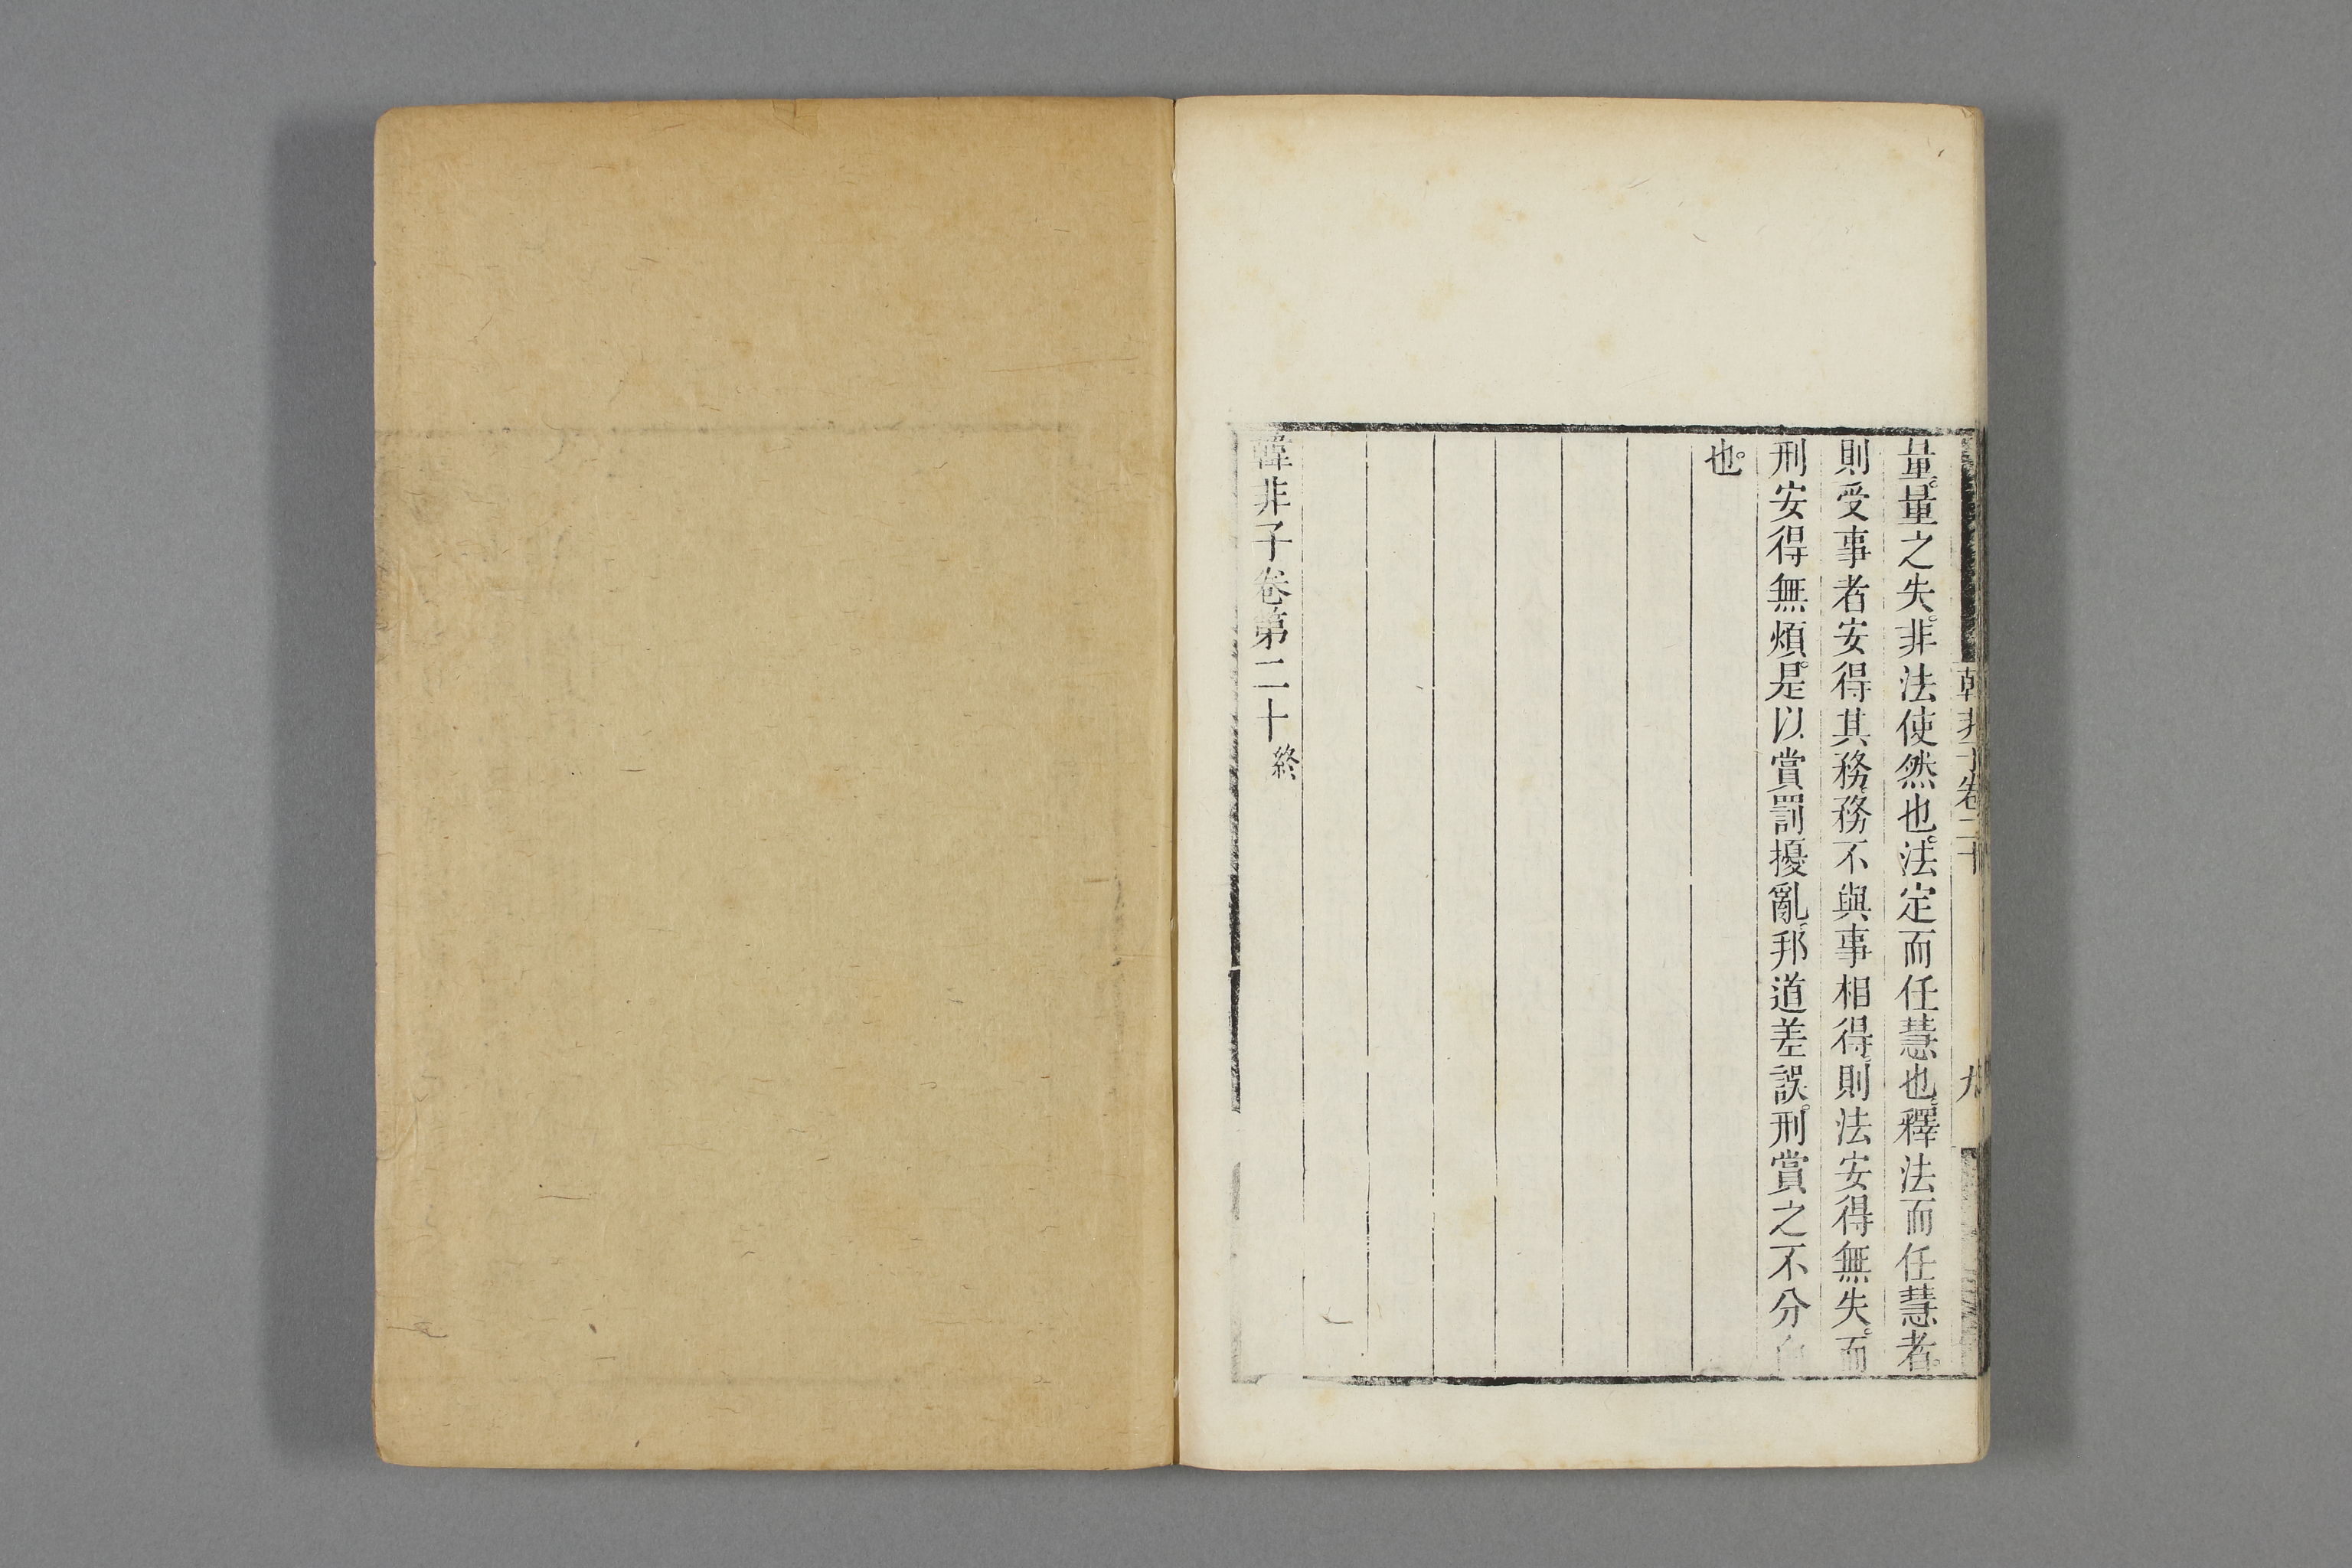 韓非子卷二十
九
量。量之失。非法使然也。法定而任慧也。釋法而任慧者。
則受事者安得其務。務不與事相得。則法安得無失。而
刑安得無煩。是以賞罰擾亂。邦道差誤。刑賞之不分白
也。
韓非子卷第二十終